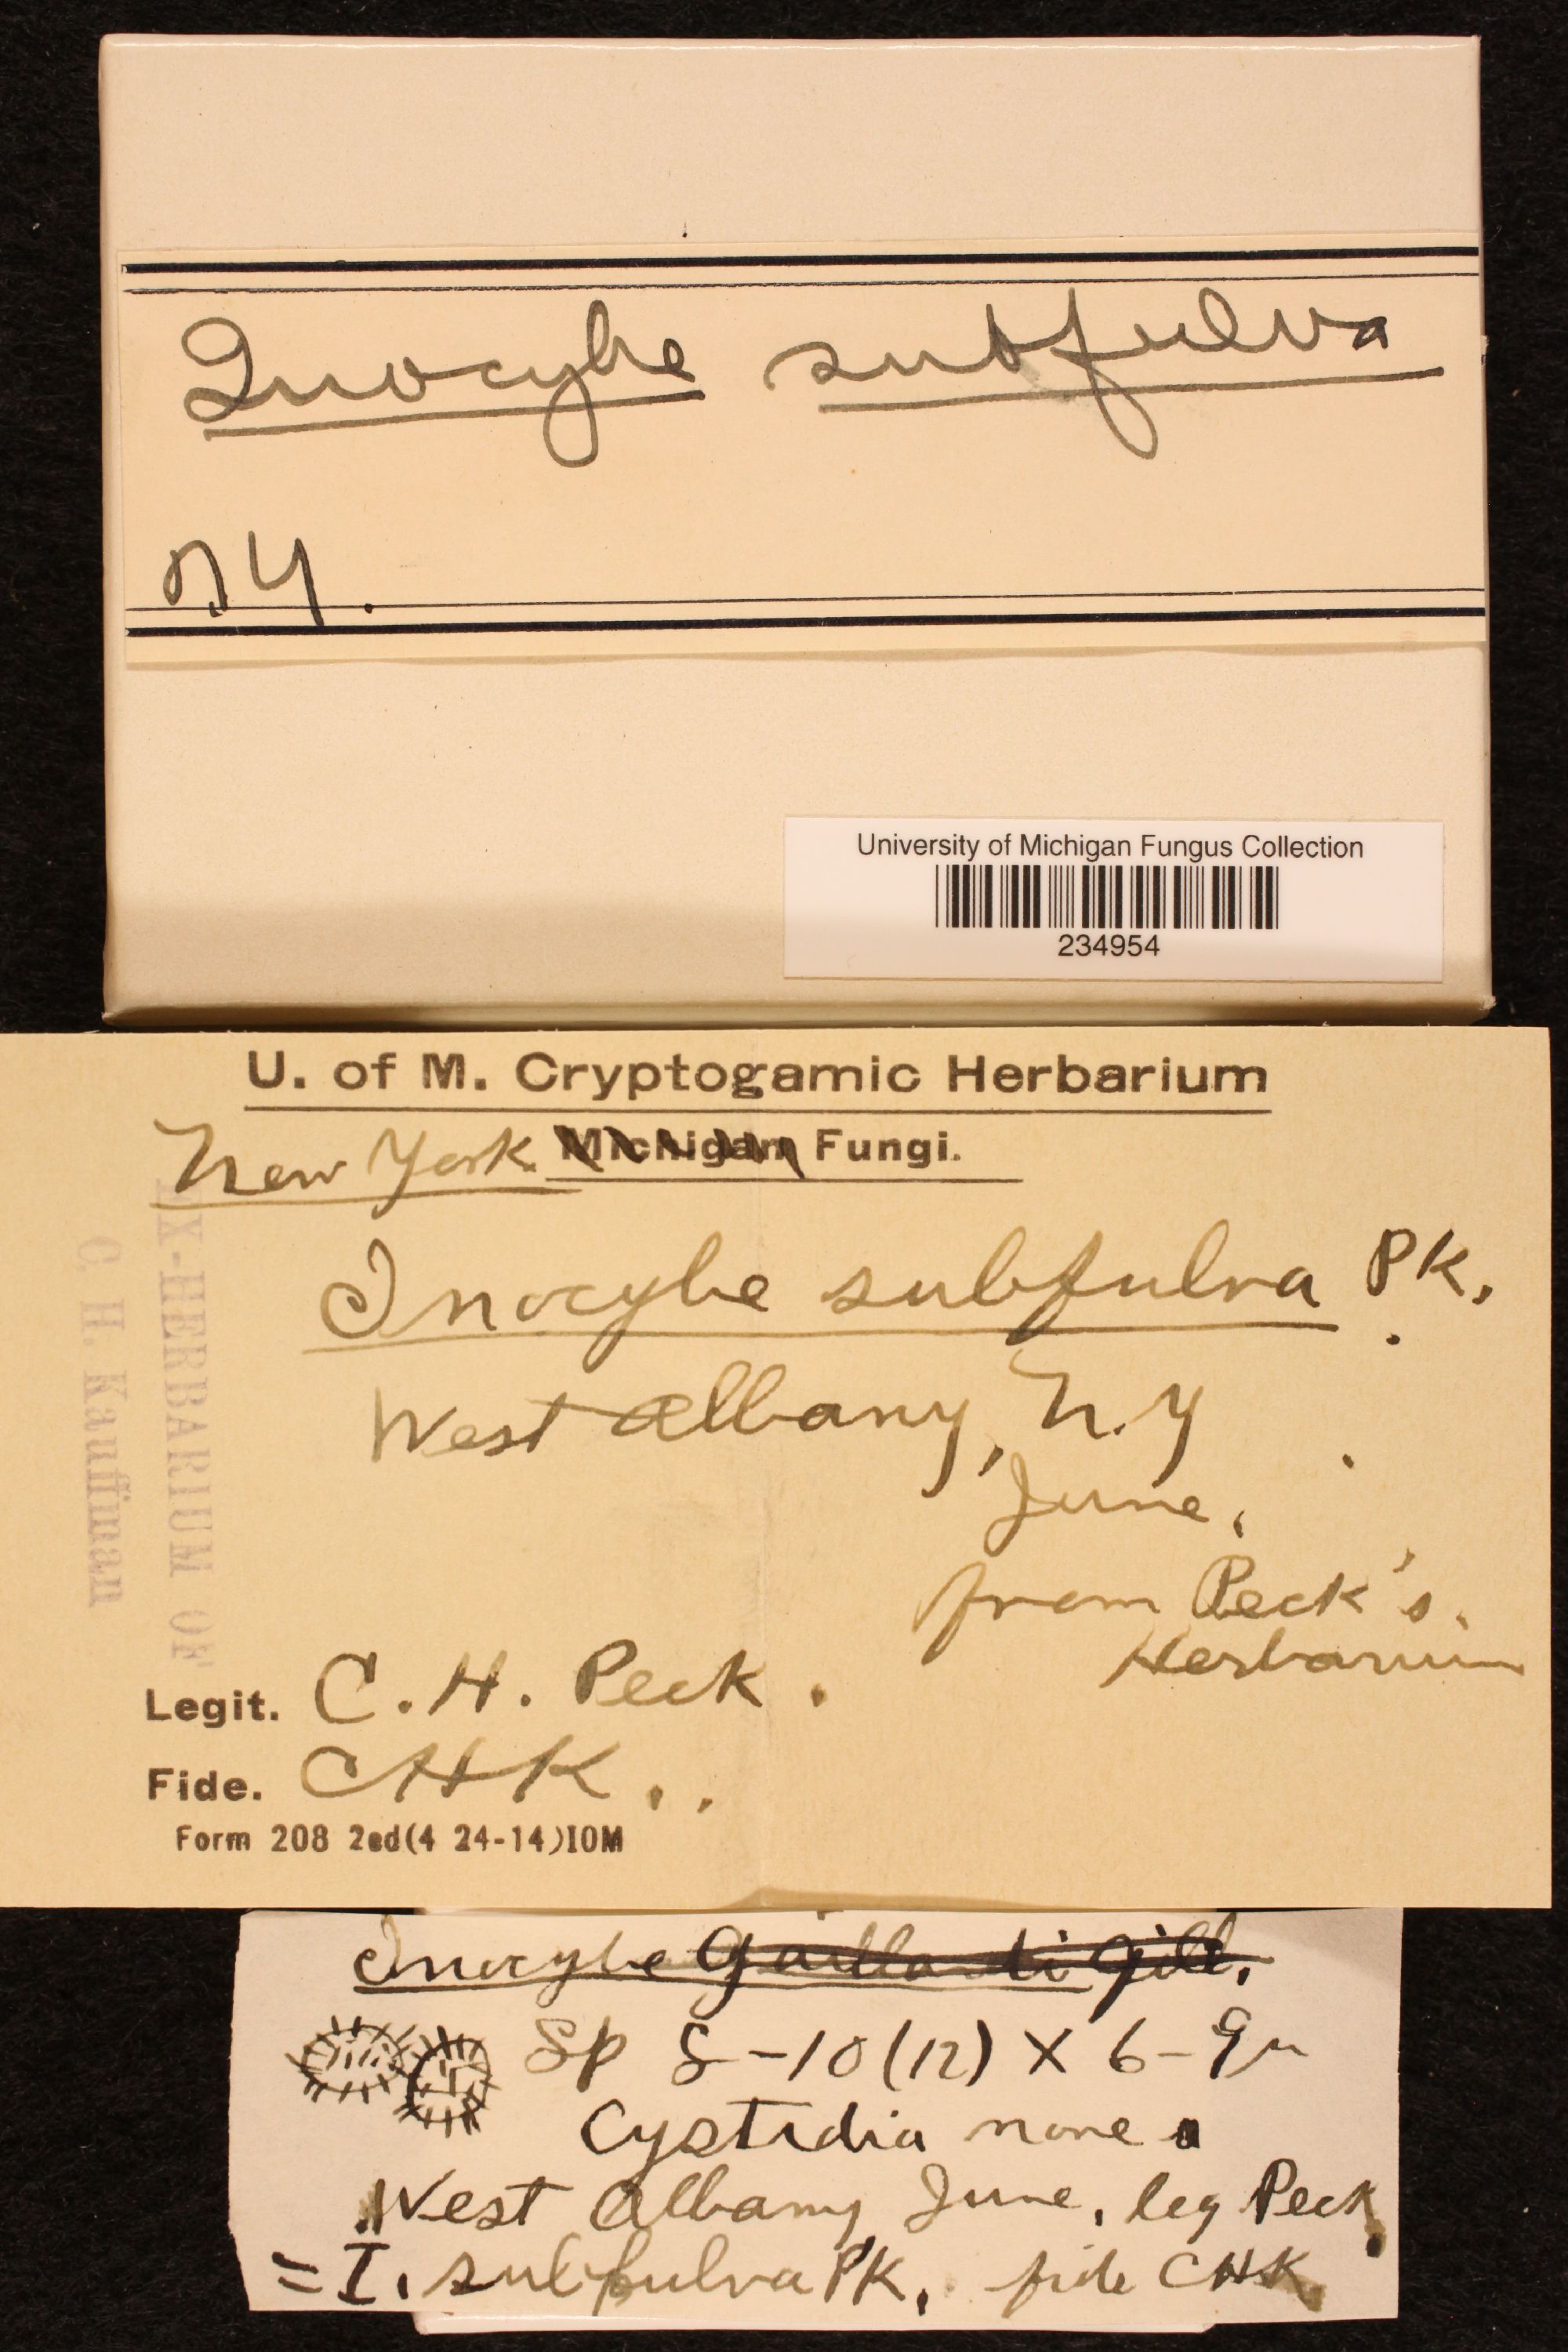 Inocybe subfulva
NY.
University of Michigan Fungus Collection
234954
U. of M. Cryptogamic Herbarium
New York Michigan Fungi.
Inocybe subfulva PK.
West Albany, N.Y
June.
from Peck's
Herbarium
EX-HERBARIUM OF
C. H. Kauffman
Legit. C. H. Peck.
Fide. CHK..
Form 208 2ed(4 24-14)IOM
Inocybe Gaillardi Gill.
Sp 8-10(12) X 6-9µ
Cystidia none.
West Albany June, leg Peck
= I. subfulva PK. fide CHK